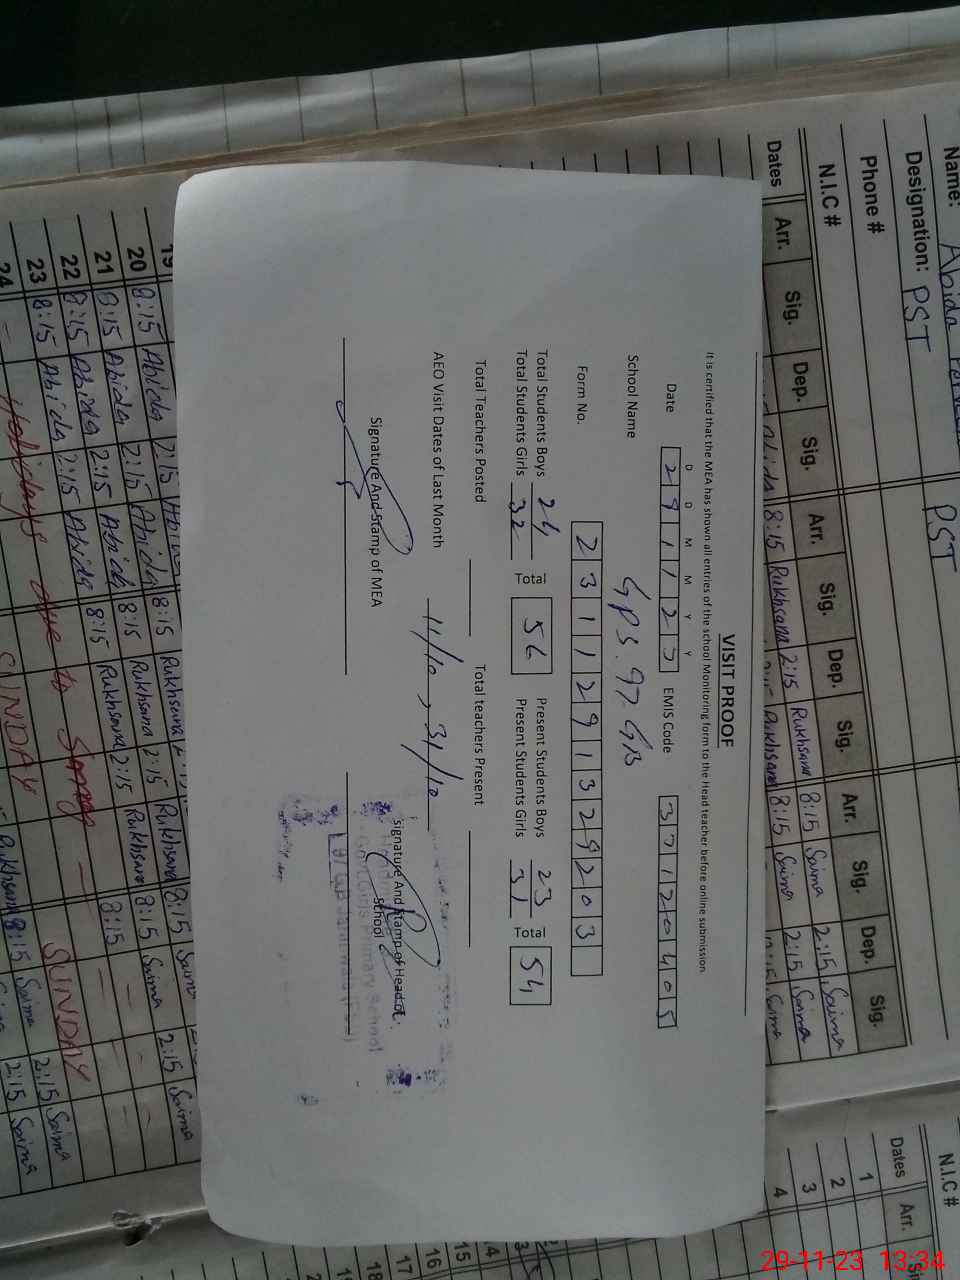 VISIT PROOF
It is certified that the MEA has shown all entries of the school Monitoring form to the Head teacher before online submission.
D D M M Y Y
Date 2 9 1 1 2 3 EMIS Code 3 3 1 2 0 4 0 5
School Name GPS. 97. GB
Form No. 2 3 1 1 2 9 1 3 2 9 2 0 3
Total Students Boys 24 Present Students Boys 23
Total Students Girls 32 Total 56 Present Students Girls 31 Total 54
Total Teachers Posted Total teachers Present
AEO Visit Dates of Last Month 11/10, 31/10
Signature And Stamp of MEA Signature And Stamp of Head of
School
Girls Primary School
Name:
Designation: PST PST
Phone #
N.I.C #
Dates Arr. Sig. Dep. Sig. Arr. Sig. Dep. Sig. Arr. Sig. Dep. Sig.
8:15 Saima 2:15 Saima
8:15 Rukhsana 2:15 Rukhsana 8:15 Saima 2:15 Saima
19 8:15 Rukhsana 8:15
20 8:15 Abida 2:15 Abida 8:15 Rukhsana 2:15 Rukhsana 8:15 Saima 2:15 Saima
21 8:15 Abida 2:15 Abida 8:15 Rukhsana 2:15 Rukhsana 8:15
22 8:15 Abida 2:15 Abida
23 8:15 Abida 2:15 Abida
24 Holidays due to Smog
SUNDAY SUNDAY
8:15 Saima 2:15 Saima
2:15 Saima
N.I.C #
Dates Arr.
1
2
3
4
14
15
16
17
18
29-11-23 13:34